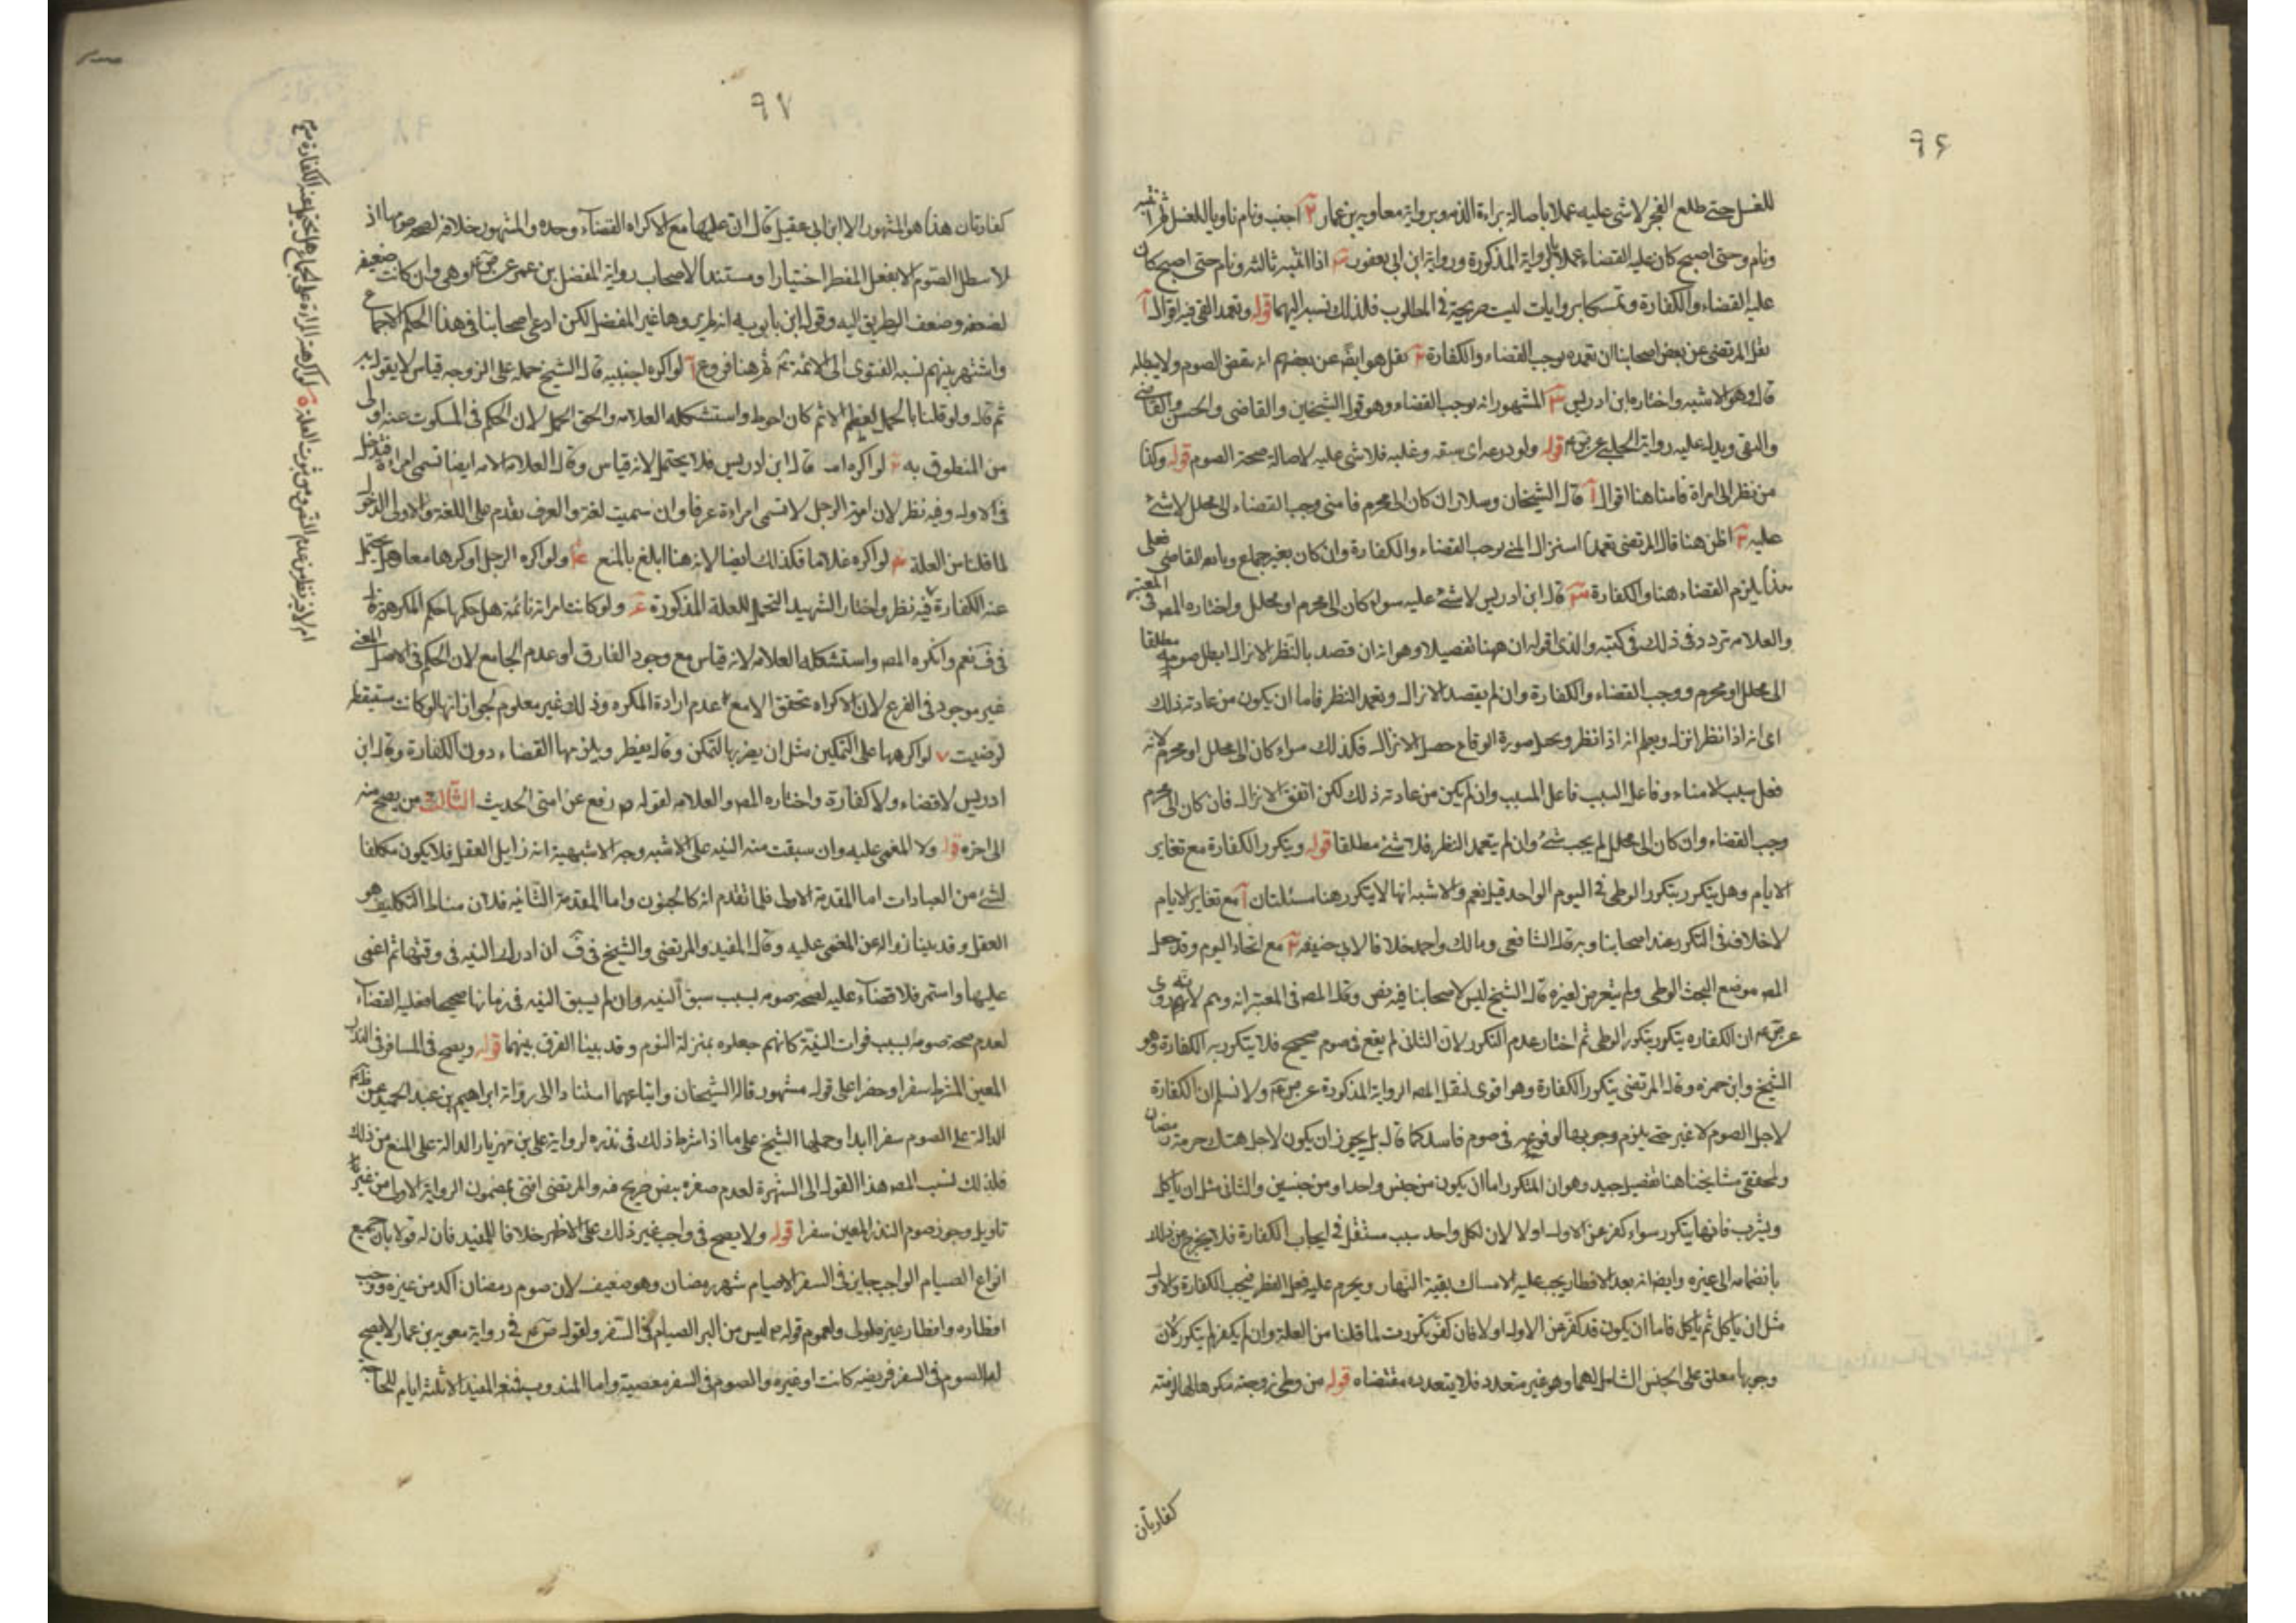 ٩٦
للغسل حتى طلع الفجر لا شی علیه عملا باصالة براءة الذمه وبروایة معاویه بن عمار ٢ اجنب ونام ناویا للغسل ثم انتبه
ونام وحتى اصبح كان علیه القضاء عملا بالروایة المذکورة وروایة ابن ابی یعفور ٣ اذا انتبه ثالثه ونام حتى اصبح كان
علیه القضاء والکفارة وتمسکا بروایات لیست صریحة فی المطلوب فلذلک نسبه الیهما قوله وتعمد القی فیه اقوال آ
نقل المرتضى عن بعض اصحابنا ان تعمده یوجب القضاء والکفارة ٢ نقل هو ایضا عن بعضهم انه ینقض الصوم ولا یبطله
قال وهو الاشبه واختاره ابن ادریس ٣ المشهور انه یوجب القضاء وهو قول الشیخین والقاضی والحسن
والتقی ویدل علیه روایة الحلبی عن ص ع قوله ولو ذرعه ای سبقه وغلبه فلا شی علیه لاصالة صحة الصوم قوله وکذا
من نظر الى امراة فامنا هنا اقوال آ قال الشیخان وسلار ان كان الى محرم فامنى وجب القضاء والى محلل لا شئ
علیه ٢ اظن هنا قال المرتضى تعمدا استنزال المنی یوجب القضاء والکفارة وان كان بغیر جماع وتابعه القاضی فعلى
هذا یلزم القضاء هنا والکفارة ٣ قال ابن ادریس لا شئ علیه سواء كان الى محرم او محلل واختاره المصه فی المعتبر
والعلامه تردد فی ذلک فی کتبه والذی اقوله ان ههنا تفصیلا وهو انه ان قصد بالنظر الانزال ابطل صومه مطلقا
الى محلل او محرم ووجب القضاء والکفارة وان لم یقصد الانزال وتعمد النظر فاما ان یکون من عادته ذلک
ای انه اذا نظر انزل ویعلم انه اذا نظر وتخیل صورة الوقاع حصل الانزال فکذلک سواء كان الى محلل او محرم لانه
فعل سبب الامناء وفاعل السبب فاعل المسبب وان لم یکن من عادته ذلک لکن اتفق الانزال فان كان الى محرم
وجب القضاء وان كان الى محلل لم یجب شئ وان لم یتعمد النظر فلا شئ مطلقا قوله ویتکرر الکفارة مع تغایر
الایام وهل یتکرر بتکرر الوطی فی الیوم الواحد قیل نعم والاشبه انها لا یتکرر هنا مسئلتان آ مع تغایر الایام
لا خلاف فی التکرر عند اصحابنا وبه قال الشافعی ومالک واحمد خلافا لابی حنیفه ٢ مع اتحاد الیوم وقد جعل
المصه موضع البحث الوطی ولم یتعرض لغیره قال الشیخ لیس لاصحابنا فیه نص ونقل المصه فی المعتبر انه روی
عن ص ع ان الکفاره یتکرر بتکرر الوطی ثم اختار عدم التکرر لان الثانی لم یقع فی صوم صحیح فلا یتکرر به الکفارة وهو
الشیخ وابن حمزه وقال المرتضى یتکرر الکفارة وهو اقوى لنقل المصه الروایة المذکورة عن ص ع ولا نسلم ان الکفارة
لاجل الصوم لا غیر حتى یلزم وجوبها لوقوعه فی صوم فاسد کما قال بل یجوز ان یکون لاجل هتک حرمة رمضان
ولمحققی مشایخنا هنا تفصیل جید وهو ان المتکرر اما ان یکون من جنس واحد او من جنسین والثانی مثل ان یاکل
ویشرب فانها یتکرر سواء کفر عن الاول او لا لان لکل واحد سبب مستقل فی ایجاب الکفارة فلا یخرج عن ذلک
بانضمامه الى غیره وایضا انه بعد الافطار یجب علیه الامساک بقیة النهار ویحرم علیه فعل المفطر فتجب الکفارة والاول
مثل ان یاکل ثم یاکل فاما ان یکون قد کفر عن الاول او لا فان کفر تکررت لما قلنا من العلة وان لم یکفر لم یتکرر لان
وجوبها معلق على الجنس الشامل لهما وهو غیر متعدد فلا یتعدد مقتضاه قوله من وطی زوجته مکرها لها لزمته
کفارتان
٩٧
کفارتان هذا هو المشهور الا ابن ابی عقیل قال ان علیها مع الاکراه القضاء وحده والمشهور خلافه لصحة صومها اذ
لا یبطل الصوم الا بفعل المفطر اختیارا ومستند الاصحاب روایة المفضل بن عمر عن ص ع وهی وان كانت ضعیفه
لضعفه وضعف الطریق الیه وقول ابن بابویه انه لم یروها غیر المفضل لکن ادعى اصحابنا فی هذا الحکم الاجماع
واشتهر بینهم نسبه الفتوى الى الائمة ع ثم هنا فروع آ لو اکره اجنبیه قال الشیخ حمله على الزوجه قیاس لا یقول به
ثم قال ولو قلنا بالحمل لعظم الاثم كان احوط واستشکله العلامه والحق الحمل لان الحکم فی المسکوت عنه اولى
من المنطوق به ٢ لو اکره امته قال ابن ادریس فلا یحتمل لانه قیاس وقال العلامه الامه ایضا تسمى امراة فتدخل
فی الاول وفیه نظر لان امة الرجل لا تسمى امراة عرفا وان سمیت لغة والعرف یقدم على اللغة والاولى الدخول
لما قلنا من العلة ٣ لو اکره غلاما فکذلک ایضا لانه هنا ابلغ بالمنع ٤ ولو اکره الرجل او اکرها معا هل یتحمل
عنه الکفارة فیه نظر واختار الشهید التحمل للعلة المذکورة ٦ ولو كانت امراته نائمة هل حکمها حکم المکرهة
فی ف نعم وانکره المصه واستشکله العلامه لانه قیاس مع وجود الفارق او عدم الجامع لان الحکم فی الاصل
غیر موجود فی الفرع لان الاکراه تحقق الا مع عدم ارادة المکره وذلک غیر معلوم لجواز انها لو كانت مستیقظه
لرضیت ٧ لو اکرهها على التمکین مثل ان یضربها لتمکن وقال یفطر ویلزمها القضاء دون الکفارة وقال ابن
ادریس لا قضاء ولا کفارة واختاره المصه والعلامه لقوله ص رفع عن امتی الحدیث الثالث من یصح منه
الى اخره قوله ولا المغمى علیه وان سبقت منه النیه على الاشبه وجه الاشبهیة انه زایل العقل فلا یکون مکلفا
لشئ من العبادات اما المقدمة الاولى فلما تقدم انه کالجنون واما المقدمة الثانیه فلان مناط التکلیف هو
العقل وقد بینا زواله عن المغمى علیه وقال المفید والمرتضى والشیخ فی ف ان ادرک النیه فی وقتها ثم اغمى
علیها واستمر فلا قضاء علیه لصحة صومه بسبب سبق النیه وان لم یسبق النیه فی زمانها صحیحا فعلیه القضاء
لعدم صحة صومه بسبب فوات النیة كانهم جعلوه بمنزلة النوم وقد بینا الفرق بینهما قوله ویصح فی المسافر فی النذر
المعین المشترط سفرا وحضرا على قول مشهور قاله الشیخان واتباعهما استنادا الى روایة ابراهیم بن عبد الحمید عن
الدالة على الصوم سفرا ابدا وحملها الشیخ على ما اذا شرط ذلک فی نذره لروایة علی بن مهزیار الدالة على المنع من ذلک
فلذلک نسب المصه هذا القول الى الشهرة لعدم ظفره بنص صریح فیه والمرتضى افتى بمضمون الروایة الاولى من غیر
تاویل وجوز صوم النذر المعین سفرا قوله ولا یصح فی واجب غیر ذلک على الاظهر خلافا للمفید فان له قولا بان جمیع
انواع الصیام الواجب جایز فی السفر الا صیام شهر رمضان وهو ضعیف لان صوم رمضان اکد من غیره ووجب
افطاره وافطار غیره بطریق اولى ولعموم قوله ص لیس من البر الصیام فی السفر ولقوله ص ع فی روایة معویه بن عمار لا یصح
له الصوم فی السفر فریضه كانت او غیره والصوم فی السفر معصیة واما المندوب فمنعه المفید الا ثلثة ایام للحاجة